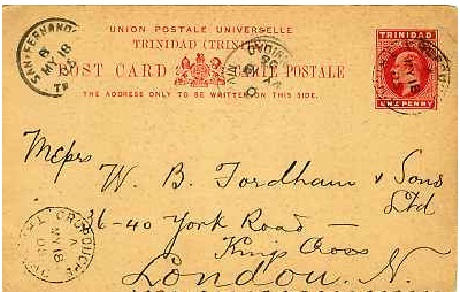 UNION POSTALE UNIVERSELLE
TRINIDAD (TRINITÉ)
POST CARD CARTE POSTALE
THE ADDRESS ONLY TO BE WRITTEN ON THIS SIDE.
TRINIDAD
ONE PENNY
SAN-FERNANDO
MY 18
Messrs
W. B. Fordham & Sons
Ltd
36-40 York Road
King's Cross
London. N.
MY 18